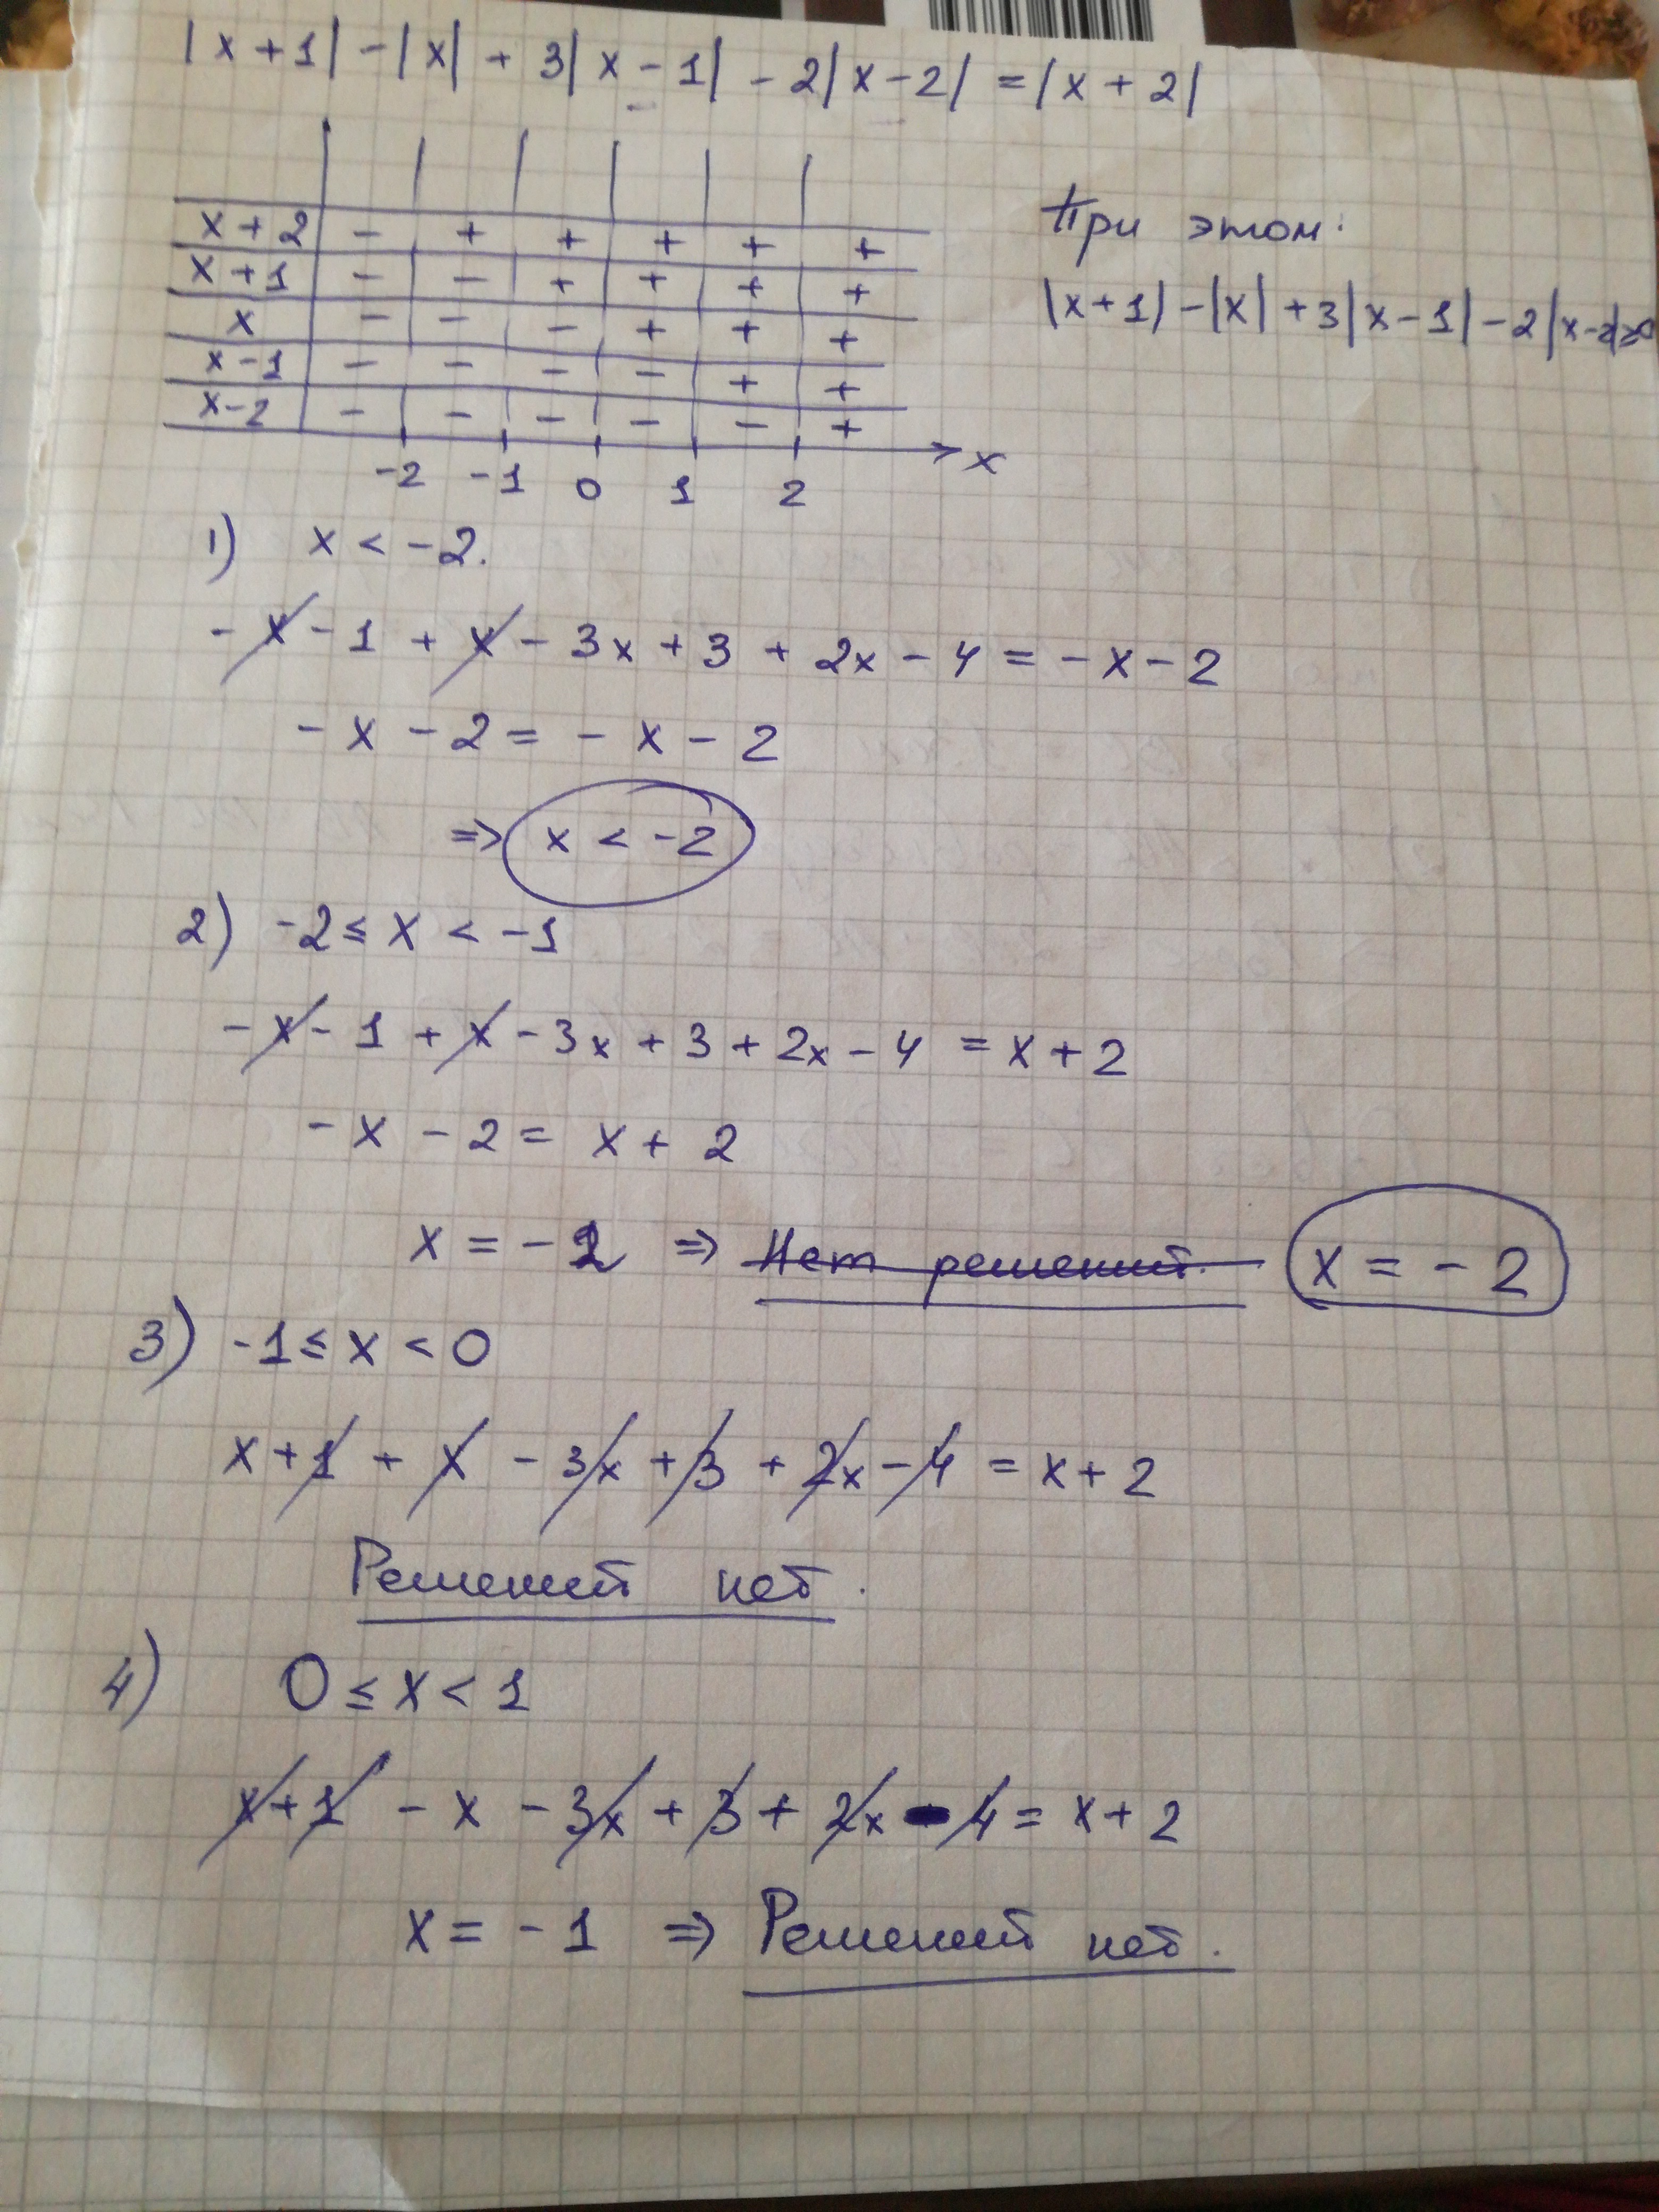 |x+1|-|x|+3|x-1|-2|x-2|=|x+2|
x+2 - + + + + +
x+1 - - + + + +
x - - - + + +
x-1 - - - - + +
x-2 - - - - - +
-2 -1 0 1 2 x
При этом:
|x+1|-|x|+3|x-1|-2|x-2|≥0
1) x < -2.
-x-1+x-3x+3+2x-4=-x-2
-x-2=-x-2
=> x < -2
2) -2≤x<-1
-x-1+x-3x+3+2x-4=x+2
-x-2=x+2
x=-2 => Нет решений. x=-2
3) -1≤x<0
x+1+x-3x+3+2x-4=x+2
Решений нет.
4) 0≤x<1
x+1-x-3x+3+2x-4=x+2
x=-1 => Решений нет.